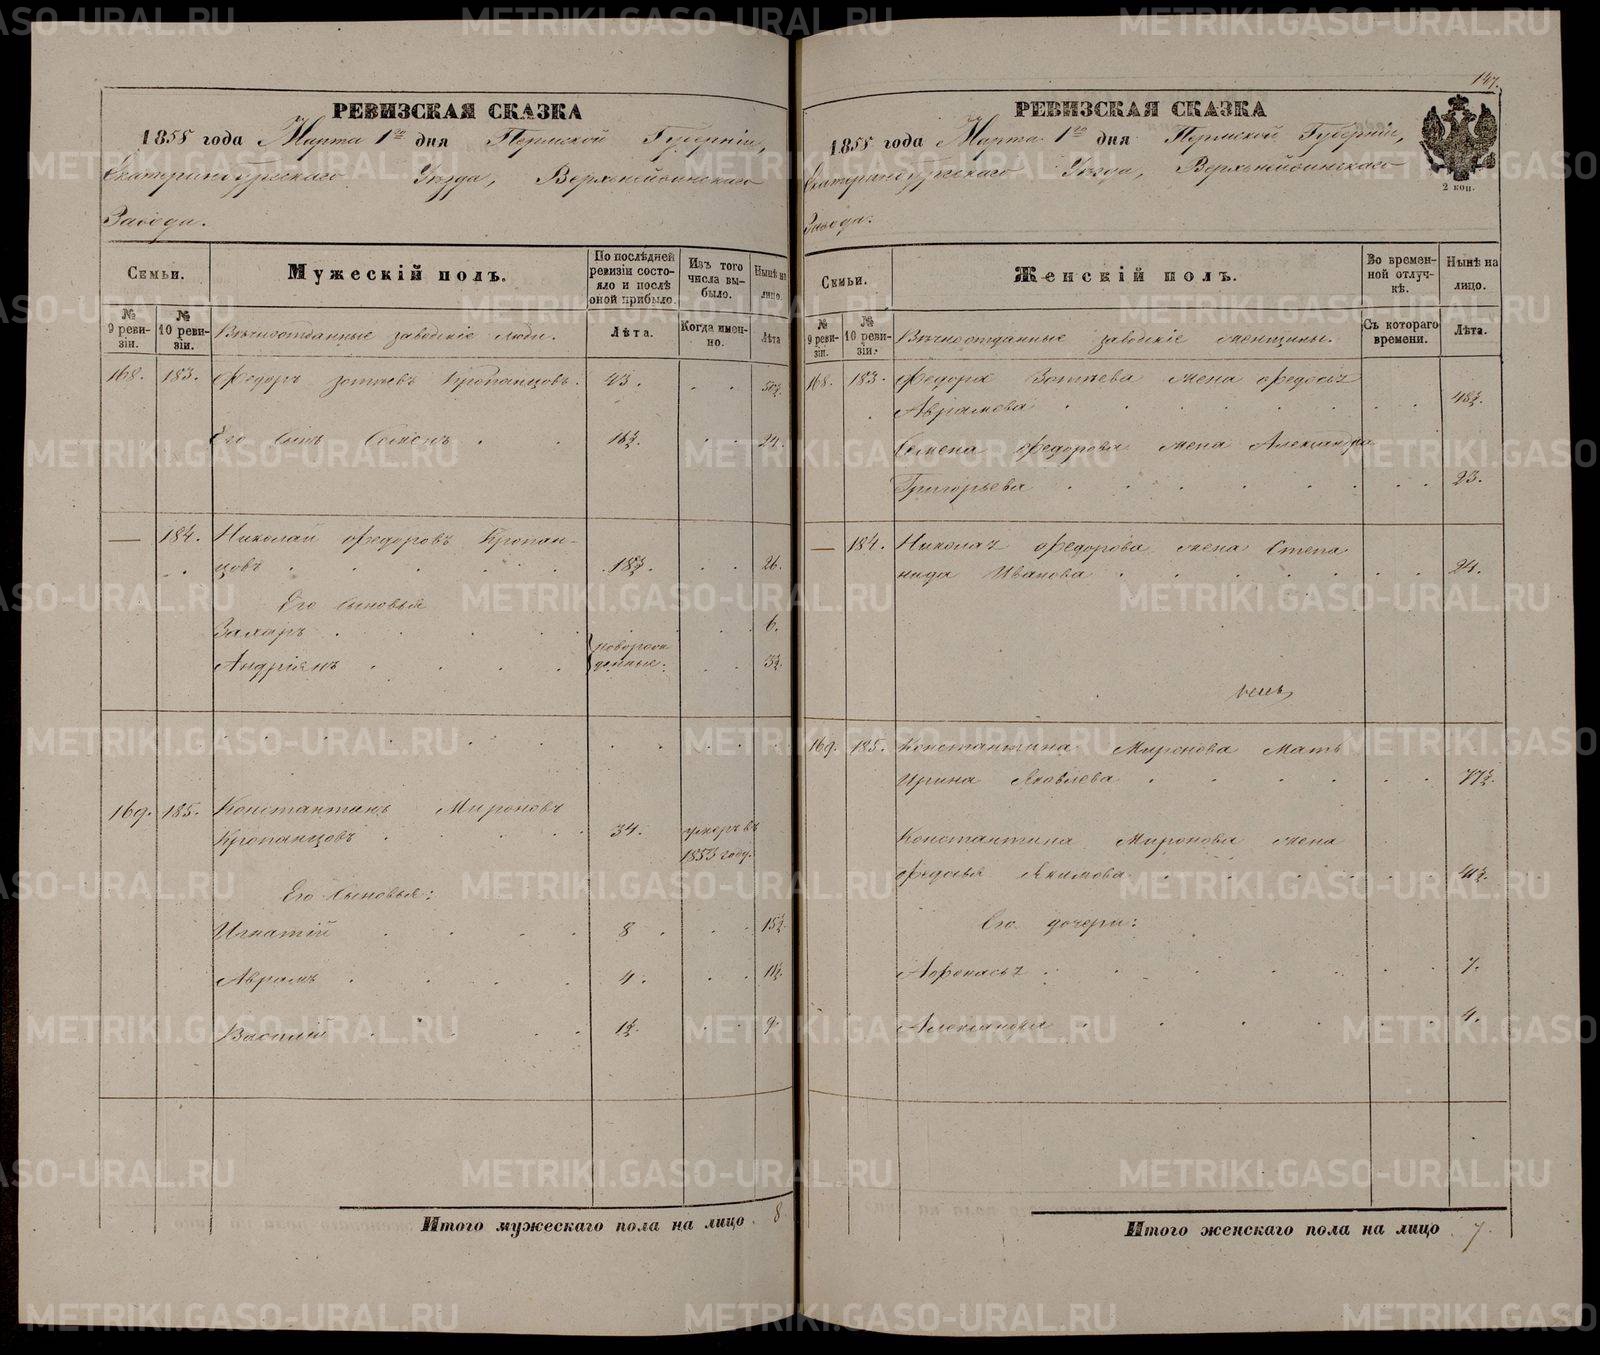 РЕВИЗСКАЯ СКАЗКА
1858 года Марта 1го дня Пермской Губерніи,
Екатеринбургскаго Уѣзда, Верхнейвинскаго
Завода.
Семьи.
Мужескій полъ.
По послѣдней ревизіи состояло и послѣ оной прибыло.
Изъ того числа выбыло.
Нынѣ на лицо.
№ 9 ревизіи.
№ 10 ревизіи.
Вѣчноотданные заводскіе люди.
Лѣта.
Когда именно.
Лѣта
168. 183. Федоръ Зотѣевъ Кропанцовъ. 43.
Его сынъ Семенъ 16½. 24.
— 184. Николай Федоровъ Кропан-
цовъ 18½. 26.
Его сыновья
Захаръ 6.
Андріянъ новорож
денные. 3½.
169. 185. Константинъ Мироновъ
Кропанцовъ 34. умеръ въ
1853 году.
Его сыновья:
Игнатій 8 15½.
Аврамъ 4. 11½.
Василій 1½. 9.
Итого мужескаго пола на лицо 8
147.
РЕВИЗСКАЯ СКАЗКА
1858 года Марта 1го дня Пермской Губерніи,
Екатеринбургскаго Уѣзда, Верхнейвинскаго
Завода.
2 коп.
Семьи.
Женскій полъ.
Во временной отлучкѣ.
Нынѣ на лицо.
№ 9 ревизіи.
№ 10 ревизіи.
Вѣчноотданные заводскіе женщины.
Съ котораго времени.
Лѣта.
168. 183. Федора Зотѣева жена Федосья
Аврамова 48½.
Семена Федорова жена Александра
Григорьева 23.
— 184. Николая Федорова жена Степа
нида Иванова 24.
169. 185. Константина Миронова мать
Ирина Яковлева 77½.
Константина Миронова жена
Федосья Акимова 41½.
Его дочери:
Афонасья 7.
Александра 4.
Итого женскаго пола на лицо 7.
METRIKI.GASO-URAL.RU